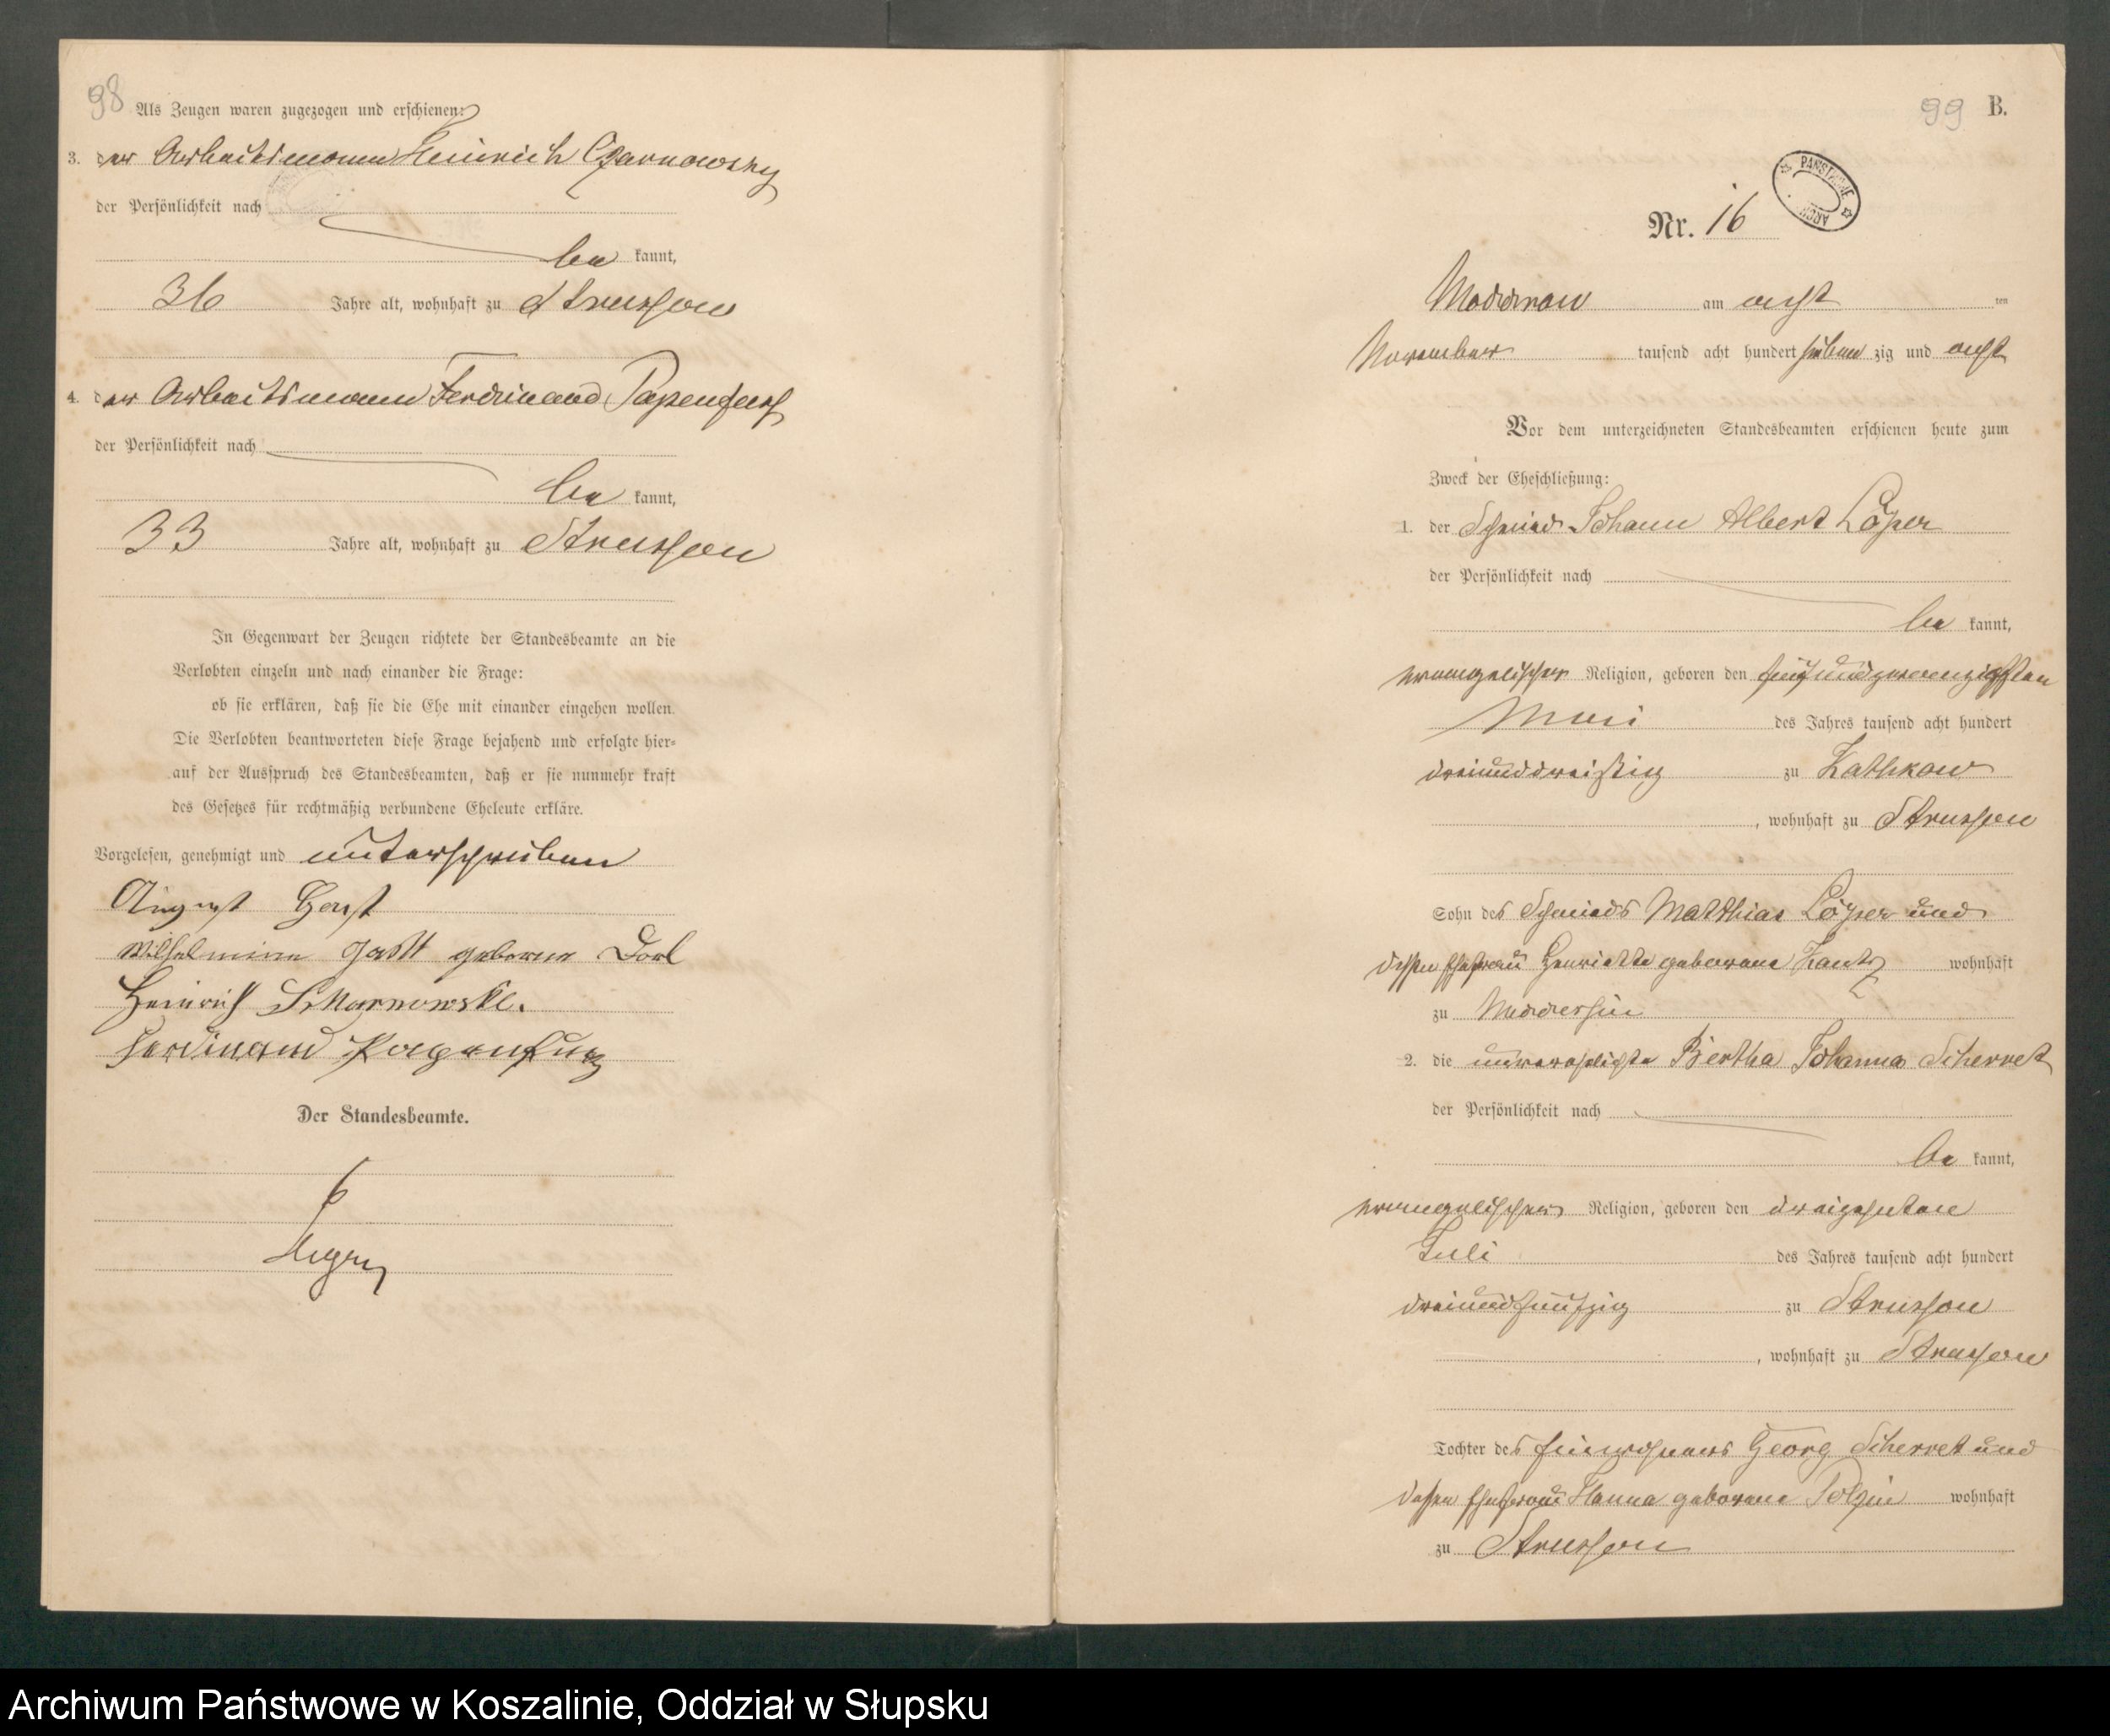 98
Als Zeugen waren zugezogen und erschienen:
3. der Arbeitsmann Heinrich Czarnowsky
der Persönlichkeit nach
be kannt,
36 Jahre alt, wohnhaft zu Strussow
4. der Arbeitsmann Ferdinand Papenfuß
der Persönlichkeit nach
be kannt,
33 Jahre alt, wohnhaft zu Strussow
In Gegenwart der Zeugen richtete der Standesbeamte an die
Verlobten einzeln und nach einander die Frage:
ob sie erklären, daß sie die Ehe mit einander eingehen wollen.
Die Verlobten beantworteten diese Frage bejahend und erfolgte hier-
auf der Ausspruch des Standesbeamten, daß er sie nunmehr kraft
des Gesetzes für rechtmäßig verbundene Eheleute erkläre.
Vorgelesen, genehmigt und unterschrieben
August
Wilhelmine geborne
Heinrich
Ferdinand
Der Standesbeamte.
99 B.
PAŃSTWOWE ARCH
Nr. 16
Moddrow am acht ten
November tausend acht hundert sieben zig und acht
Vor dem unterzeichneten Standesbeamten erschienen heute zum
Zweck der Eheschließung:
1. der Schmied Johann Albert Löper
der Persönlichkeit nach
be kannt,
evangelischer Religion, geboren den fünfundzwanzigsten
Mai des Jahres tausend acht hundert
dreiunddreißig zu Kathkow
, wohnhaft zu Strussow
Sohn des Schmieds Matthias Löper und
dessen Ehefrau Henriette geborene wohnhaft
zu Neddersin
2. die unverehelichte Bertha Johanna Scherret
der Persönlichkeit nach
be kannt,
evangelischer Religion, geboren den dreizehnten
Juli des Jahres tausend acht hundert
dreiundfünfzig zu Strussow
, wohnhaft zu Strussow
Tochter des Einwohners Georg Scherret und
dessen Ehefrau Hanna geborene Polzin wohnhaft
zu Strussow
Archiwum Państwowe w Koszalinie, Oddział w Słupsku